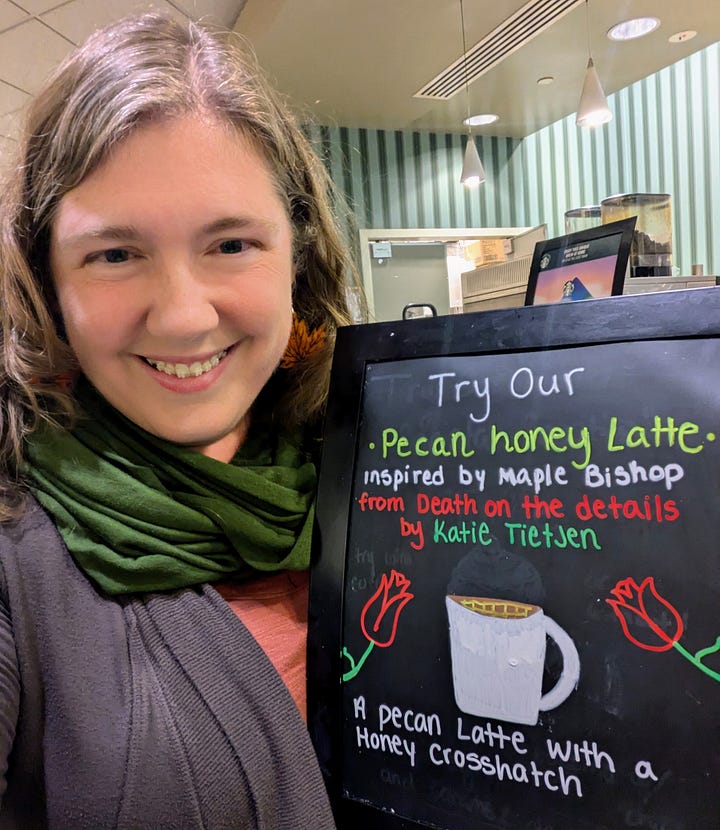 Try Our
• Pecan honey Latte •
inspired by Maple Bishop
from Death on the details
by Katie Tietjen
A pecan Latte with a
Honey Crosshatch